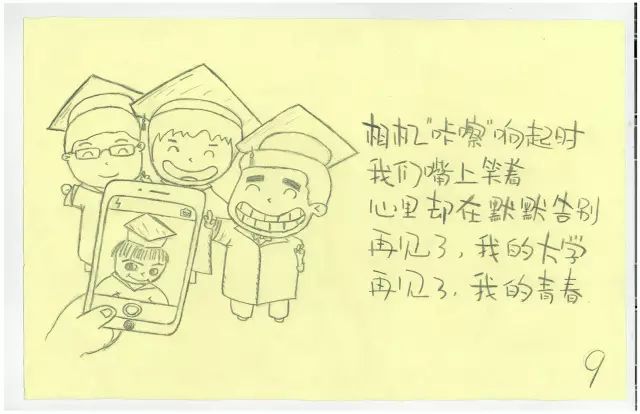 相机"咔嚓"响起时
我们嘴上笑着
心里却在默默告别
再见了，我的大学
再见了，我的青春
9